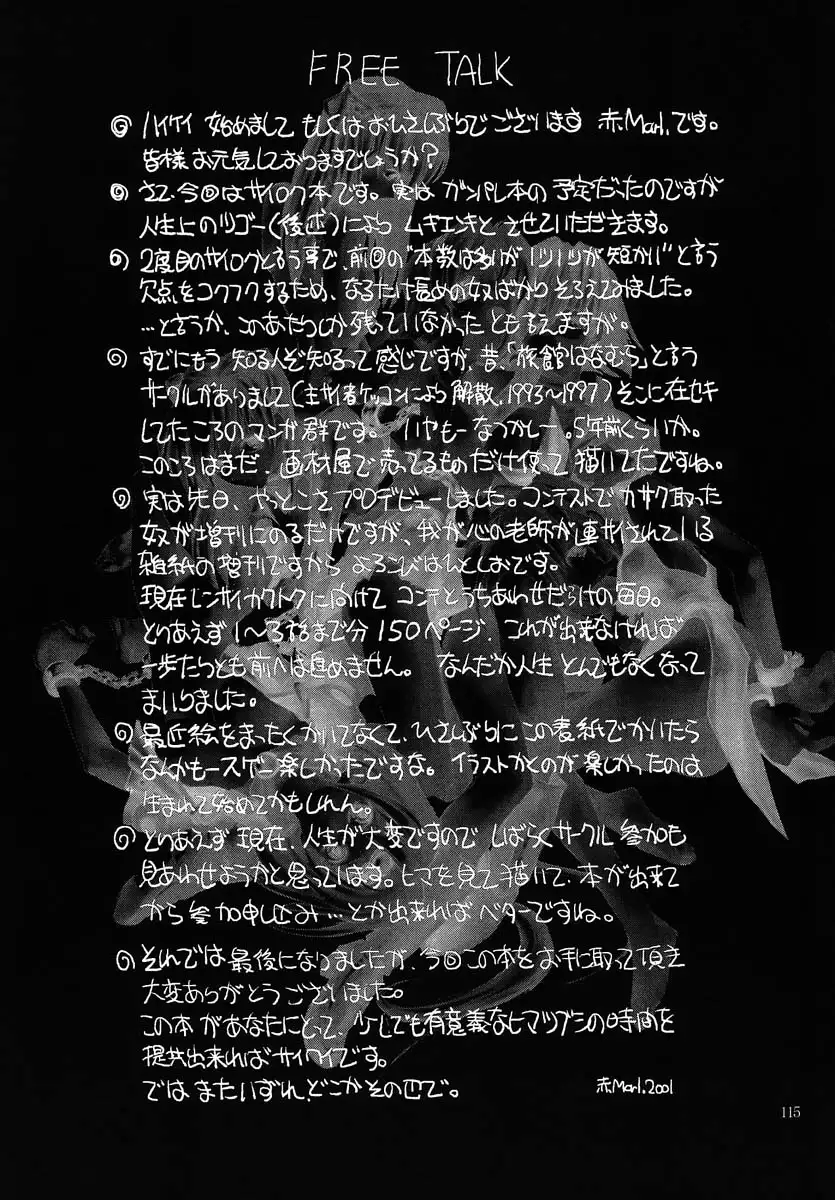 FREE TALK
◎ ハイケイ 始めまして もしくは おひさしぶりでございます 赤Marl.です。
皆様 お元気しておりますでしょうか?
◎ さて、今回はサイロク本です。実は ガンパレ本の 予定だったのですが
人生上のツゴー(後述)により ムキエンキと させていただきます。
◎ 2度目のサイロクと言う事で、前回の“本数は多いが1ツ1ツが短かい”と言う
欠点をコクフクするため、なるたけ長めの奴ばかり そろえてみました。
…と言うか、このあたりしか 残っていなかった とも言えますが。
◎ すでにもう 知る人ぞ知るって 感じですが、昔、「旅館はなむら」と言う
サークルがありまして(主サイ者ケッコンにより 解散、1993〜1997)そこに在セキ
してたころのマンガ群です。 いやもー なつかしー。5年前くらいか。
このころはまだ、画材屋で 売ってるものだけ使って 描いてたですね。
◎ 実は先日、やっとこさプロデビューしました。コンテストで カサク取った
奴が増刊にのるだけですが、我が心の老師が連サイされている
雑紙の増刊ですから よろこびはひとしおです。
現在レンサイカクトクに向けて コンテとうちあわせだらけの毎日。
とりあえず1〜3話まで分150ページ、これが出来なければ
一歩たりとも前へは進めません。 なんだか人生 とんでもなくなって
まいりました。
◎ 最近絵をまったくかいてなくて、ひさしぶりにこの表紙でかいたら
なんかもースゲー楽しかったですな。 イラストかくのが楽しかったのは
生まれて始めてかもしれん。
◎ とりあえず 現在、人生が大変ですので しばらくサークル 参加も
見あわせようかと思っています。ヒマを見て描いて、本が出来て
から参加申し込み…とか出来ればベターですね。
◎ それでは 最後になりましたが、今回この本をお手に取って頂き
大変ありがとうございました。
この本があなたにとって、少しでも有意義なヒマツブシの時間を
提共出来ればサイワイです。
では またいずれ、どこかその辺で。
赤Marl.2001
115